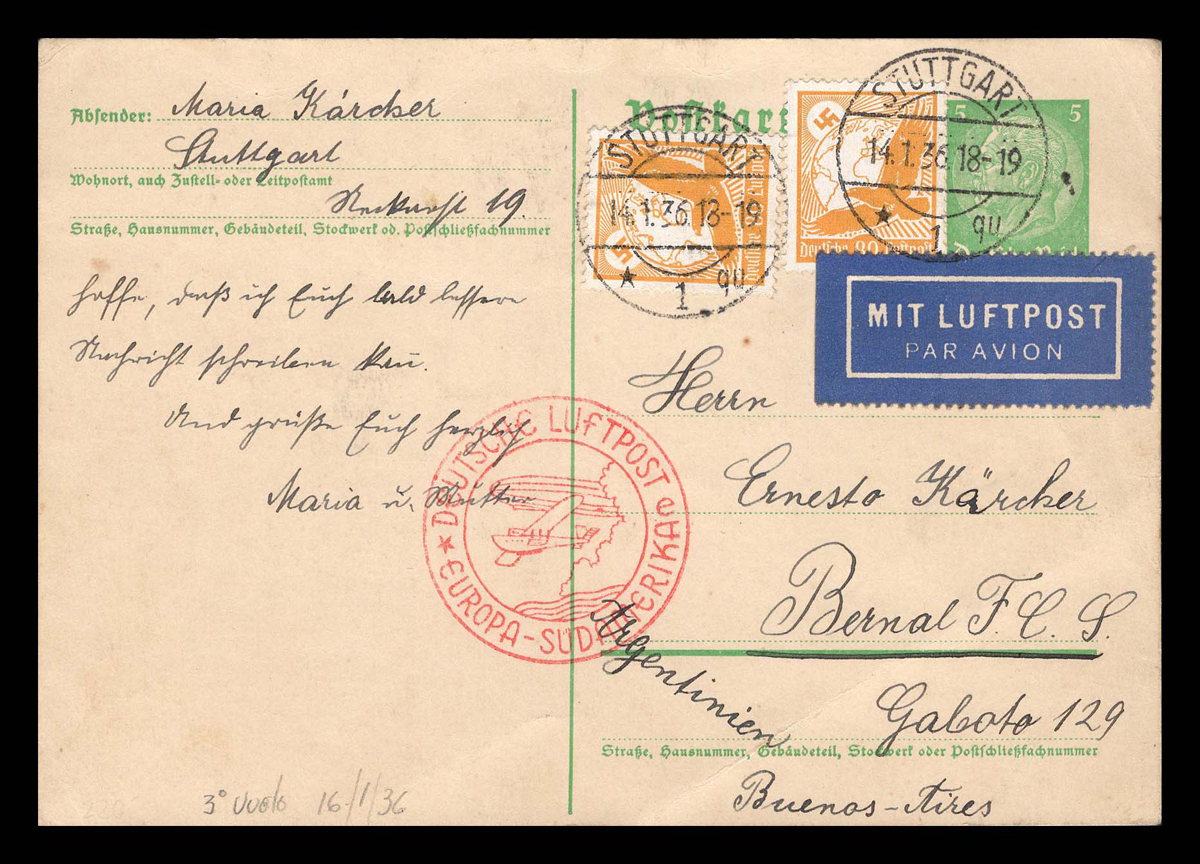 Absender: Maria Kärcher
Stuttgart
Wohnort, auch Zustell- oder Leitpostamt
Neckarst 19.
Straße, Hausnummer, Gebäudeteil, Stockwerk od. Postschließfachnummer
hoffe, daß ich Euch bald bessere
Nachricht schreiben kan.
Und grüße Euch herzlich
Maria u. Mutter
3° Vuolo 16/1/36
Postkart
STUTTGART
14.1.36.18-19
1 qu
Deutsche Luftpost
STUTTGART
14.1.36.18-19
1 qu
Deutsche 80 Luftpost
5 5
Deutsches Reich
MIT LUFTPOST
PAR AVION
DEUTSCHE LUFTPOST
EUROPA-SÜDAMERIKA
Herrn
Ernesto Kärcher
Bernal F. C. S.
Argentinien
Gaboto 129
Straße, Hausnummer, Gebäudeteil, Stockwerk oder Postschließfachnummer
Buenos-Aires